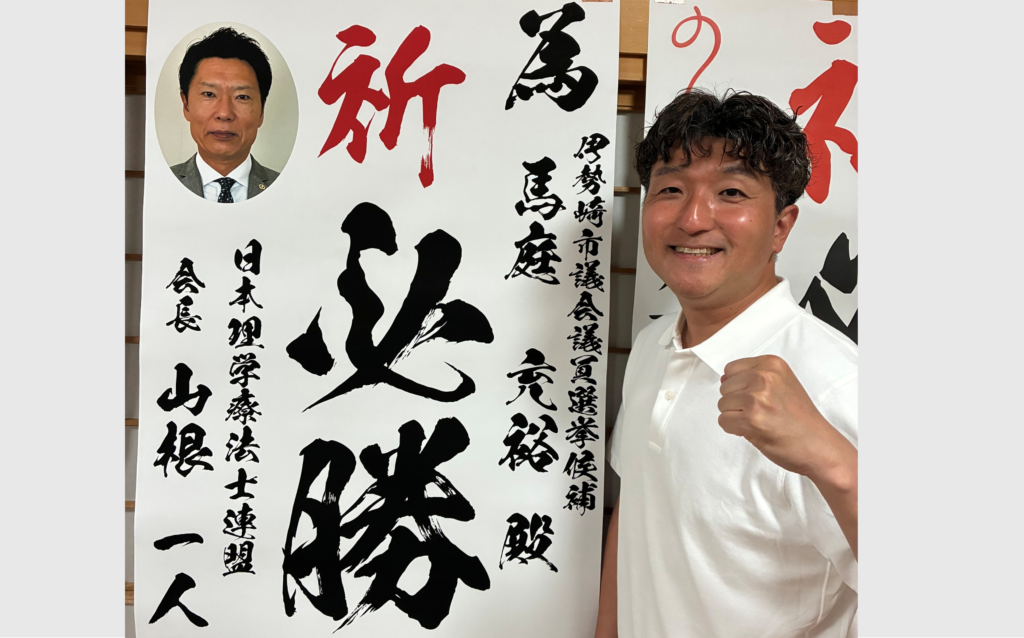 為
伊勢崎市議会議員選挙候補
馬庭 充裕 殿
祈
必勝
日本理学療法士連盟
会長 山根 一人
の